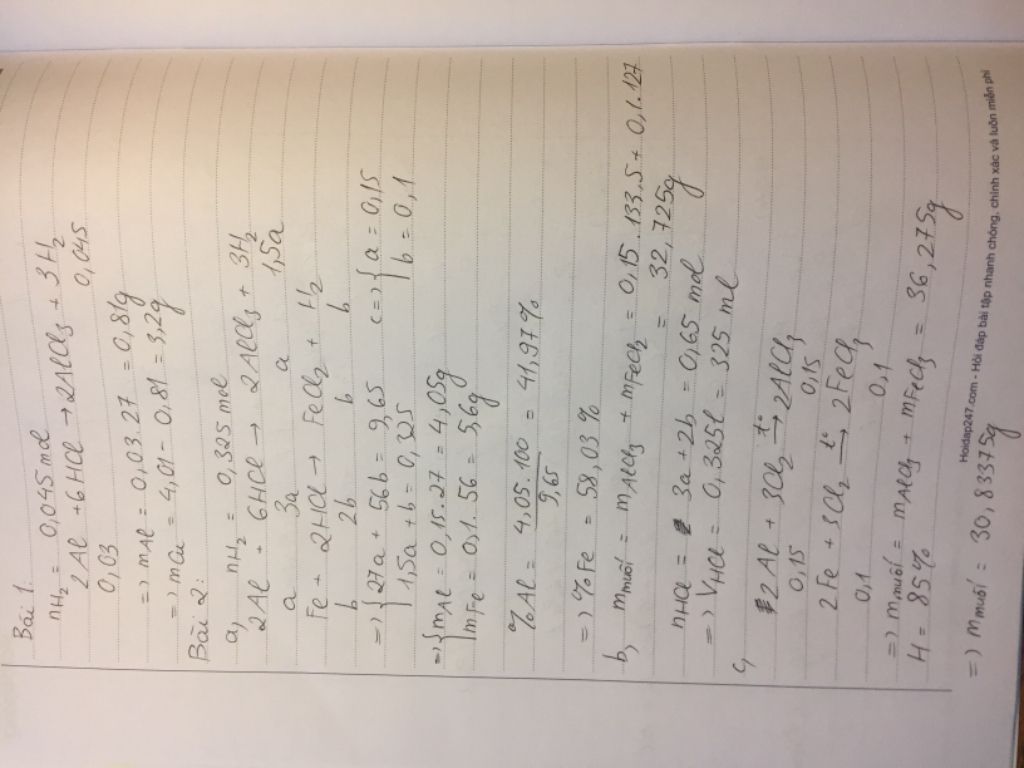 Bài 1:
nH₂ = 0,045 mol
2Al + 6HCl → 2AlCl₃ + 3H₂
0,03 0,045
=) mAl = 0,03.27 = 0,81g
=) mCu = 4,01 - 0,81 = 3,2g
Bài 2:
a, nH₂ = 0,325 mol
2Al + 6HCl → 2AlCl₃ + 3H₂
a 3a a 1,5a
Fe + 2HCl → FeCl₂ + H₂
b 2b b b
=) { 27a + 56b = 9,65 (=) { a = 0,15
1,5a + b = 0,325 b = 0,1
=) { mAl = 0,15.27 = 4,05g
mFe = 0,1.56 = 5,6g
%Al = 4,05.100 / 9,65 = 41,97%
=) %Fe = 58,03%
b, mmuối = mAlCl₃ + mFeCl₂ = 0,15.133,5 + 0,1.127
= 32,725g
nHCl = 3a + 2b = 0,65 mol
=) VHCl = 0,325l = 325 ml
c, 2Al + 3Cl₂ t°→ 2AlCl₃
0,15 0,15
2Fe + 3Cl₂ t°→ 2FeCl₃
0,1 0,1
=) mmuối = mAlCl₃ + mFeCl₃ = 36,275g
H = 85%
Hoidap247.com - Hỏi đáp bài tập nhanh chóng, chính xác và luôn miễn phí
=) mmuối = 30,83375g